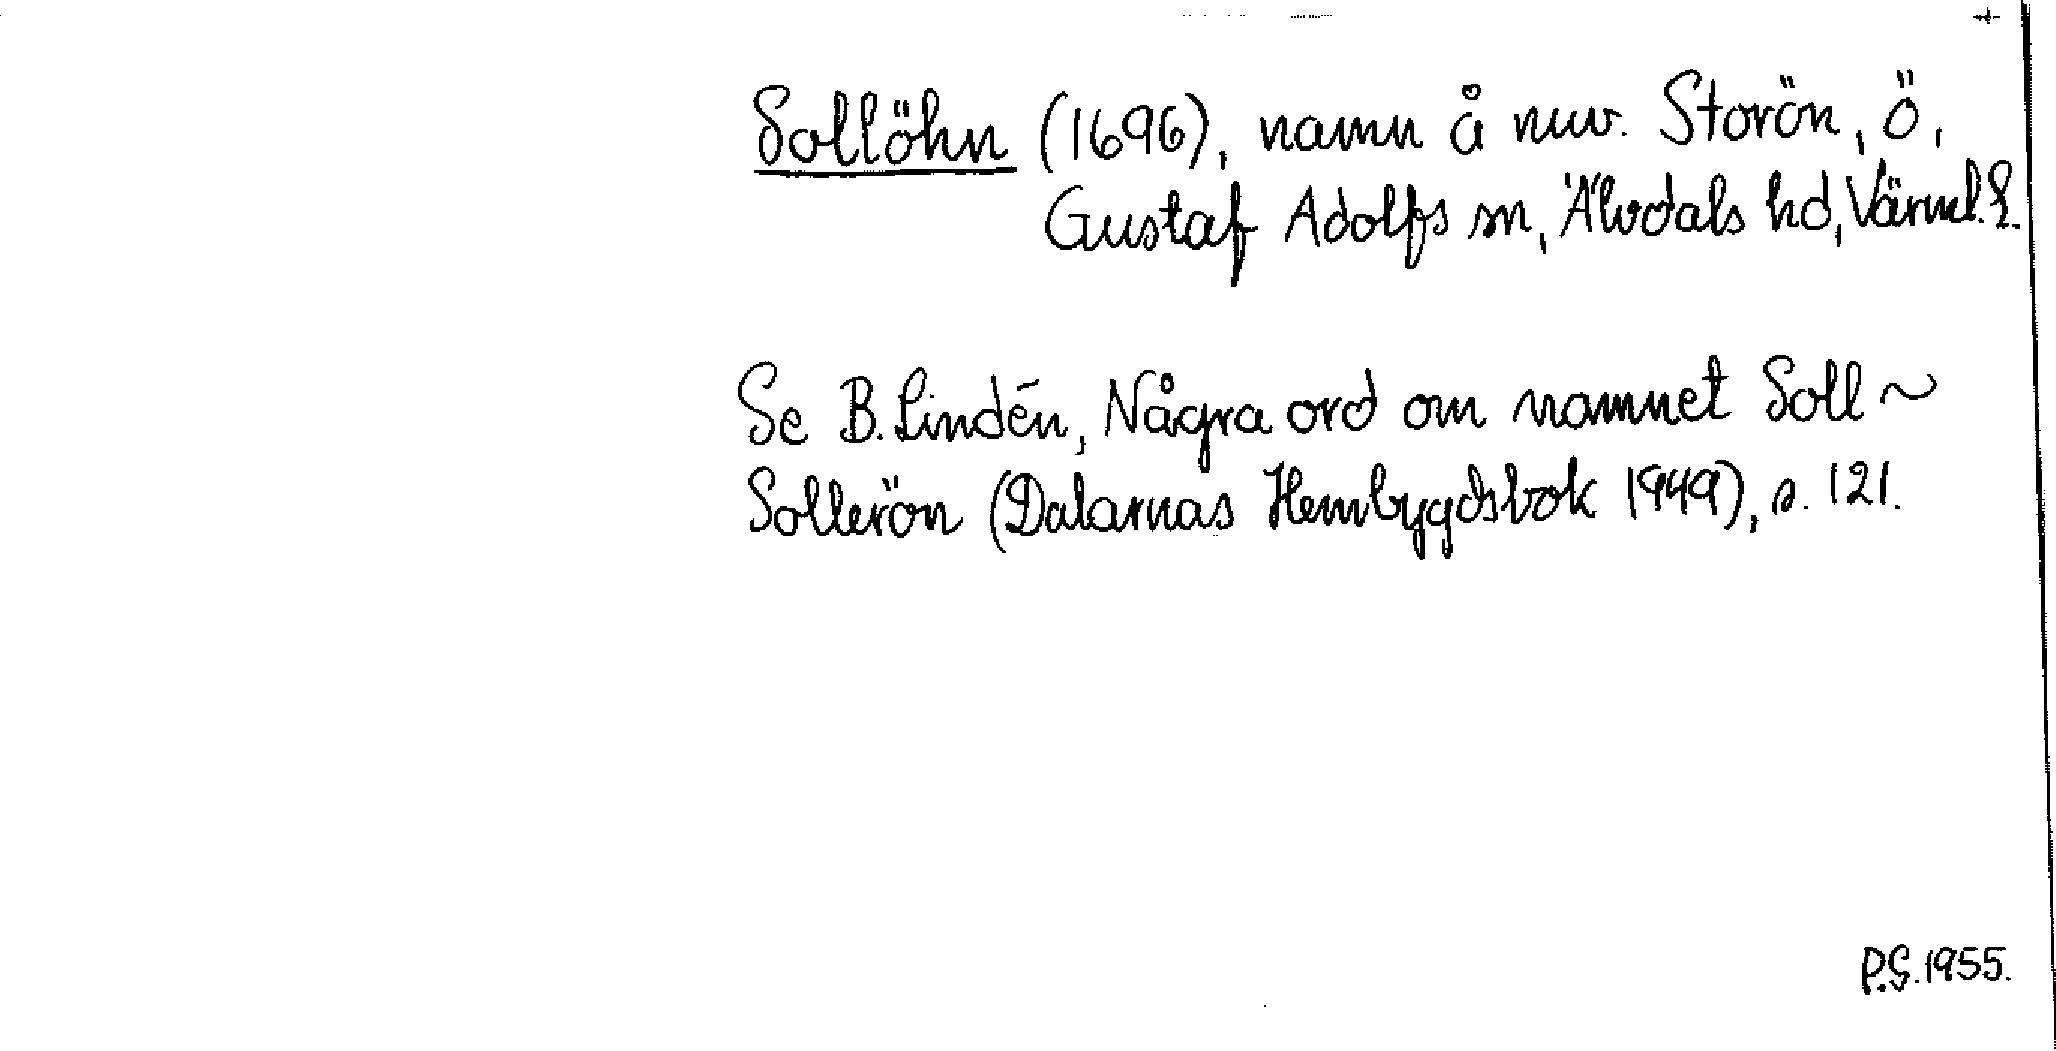 Sollöhn (1696), namn å nuv. Storön, ö,
Gustaf Adolfs sn, Älvdals hd, Värml. l.
Se B. Lindén, Några ord om namnet Soll ~
Sollerön (Dalarnas Hembygdsbok 1949), s. 121.
P.G. 1955.